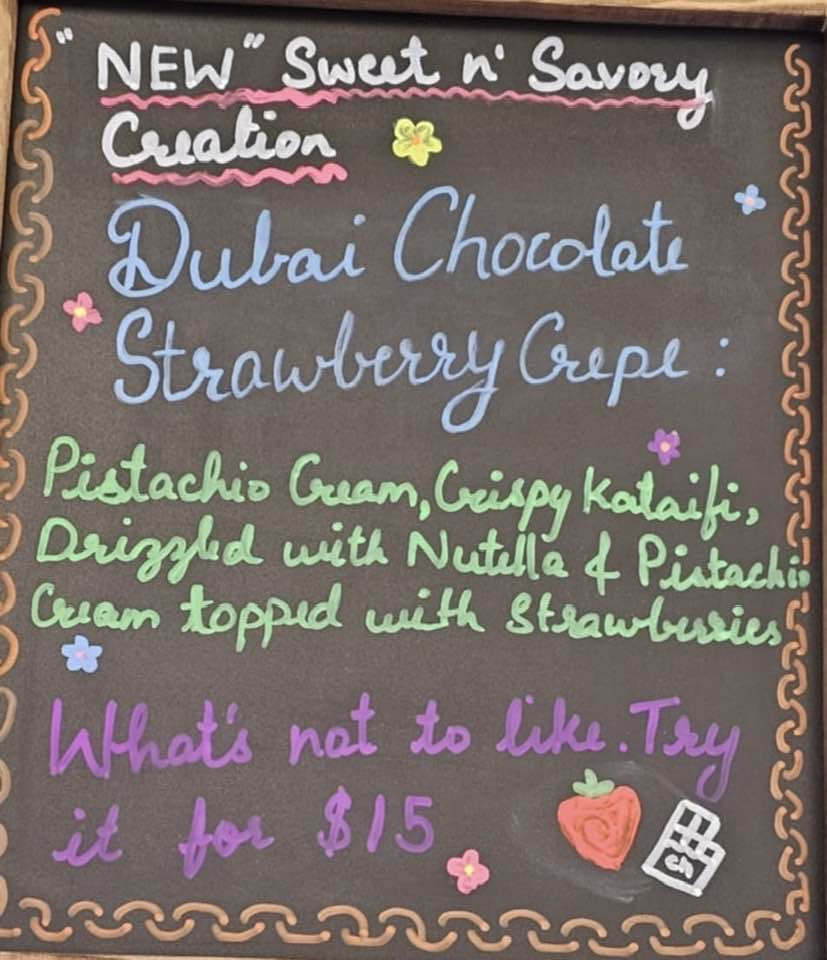 "NEW" Sweet n' Savory
Creation
Dubai Chocolate
Strawberry Crepe :
Pistachio Cream, Crispy Kataifi,
Drizzled with Nutella & Pistachio
Cream topped with Strawberries
What's not to like. Try
it for $15